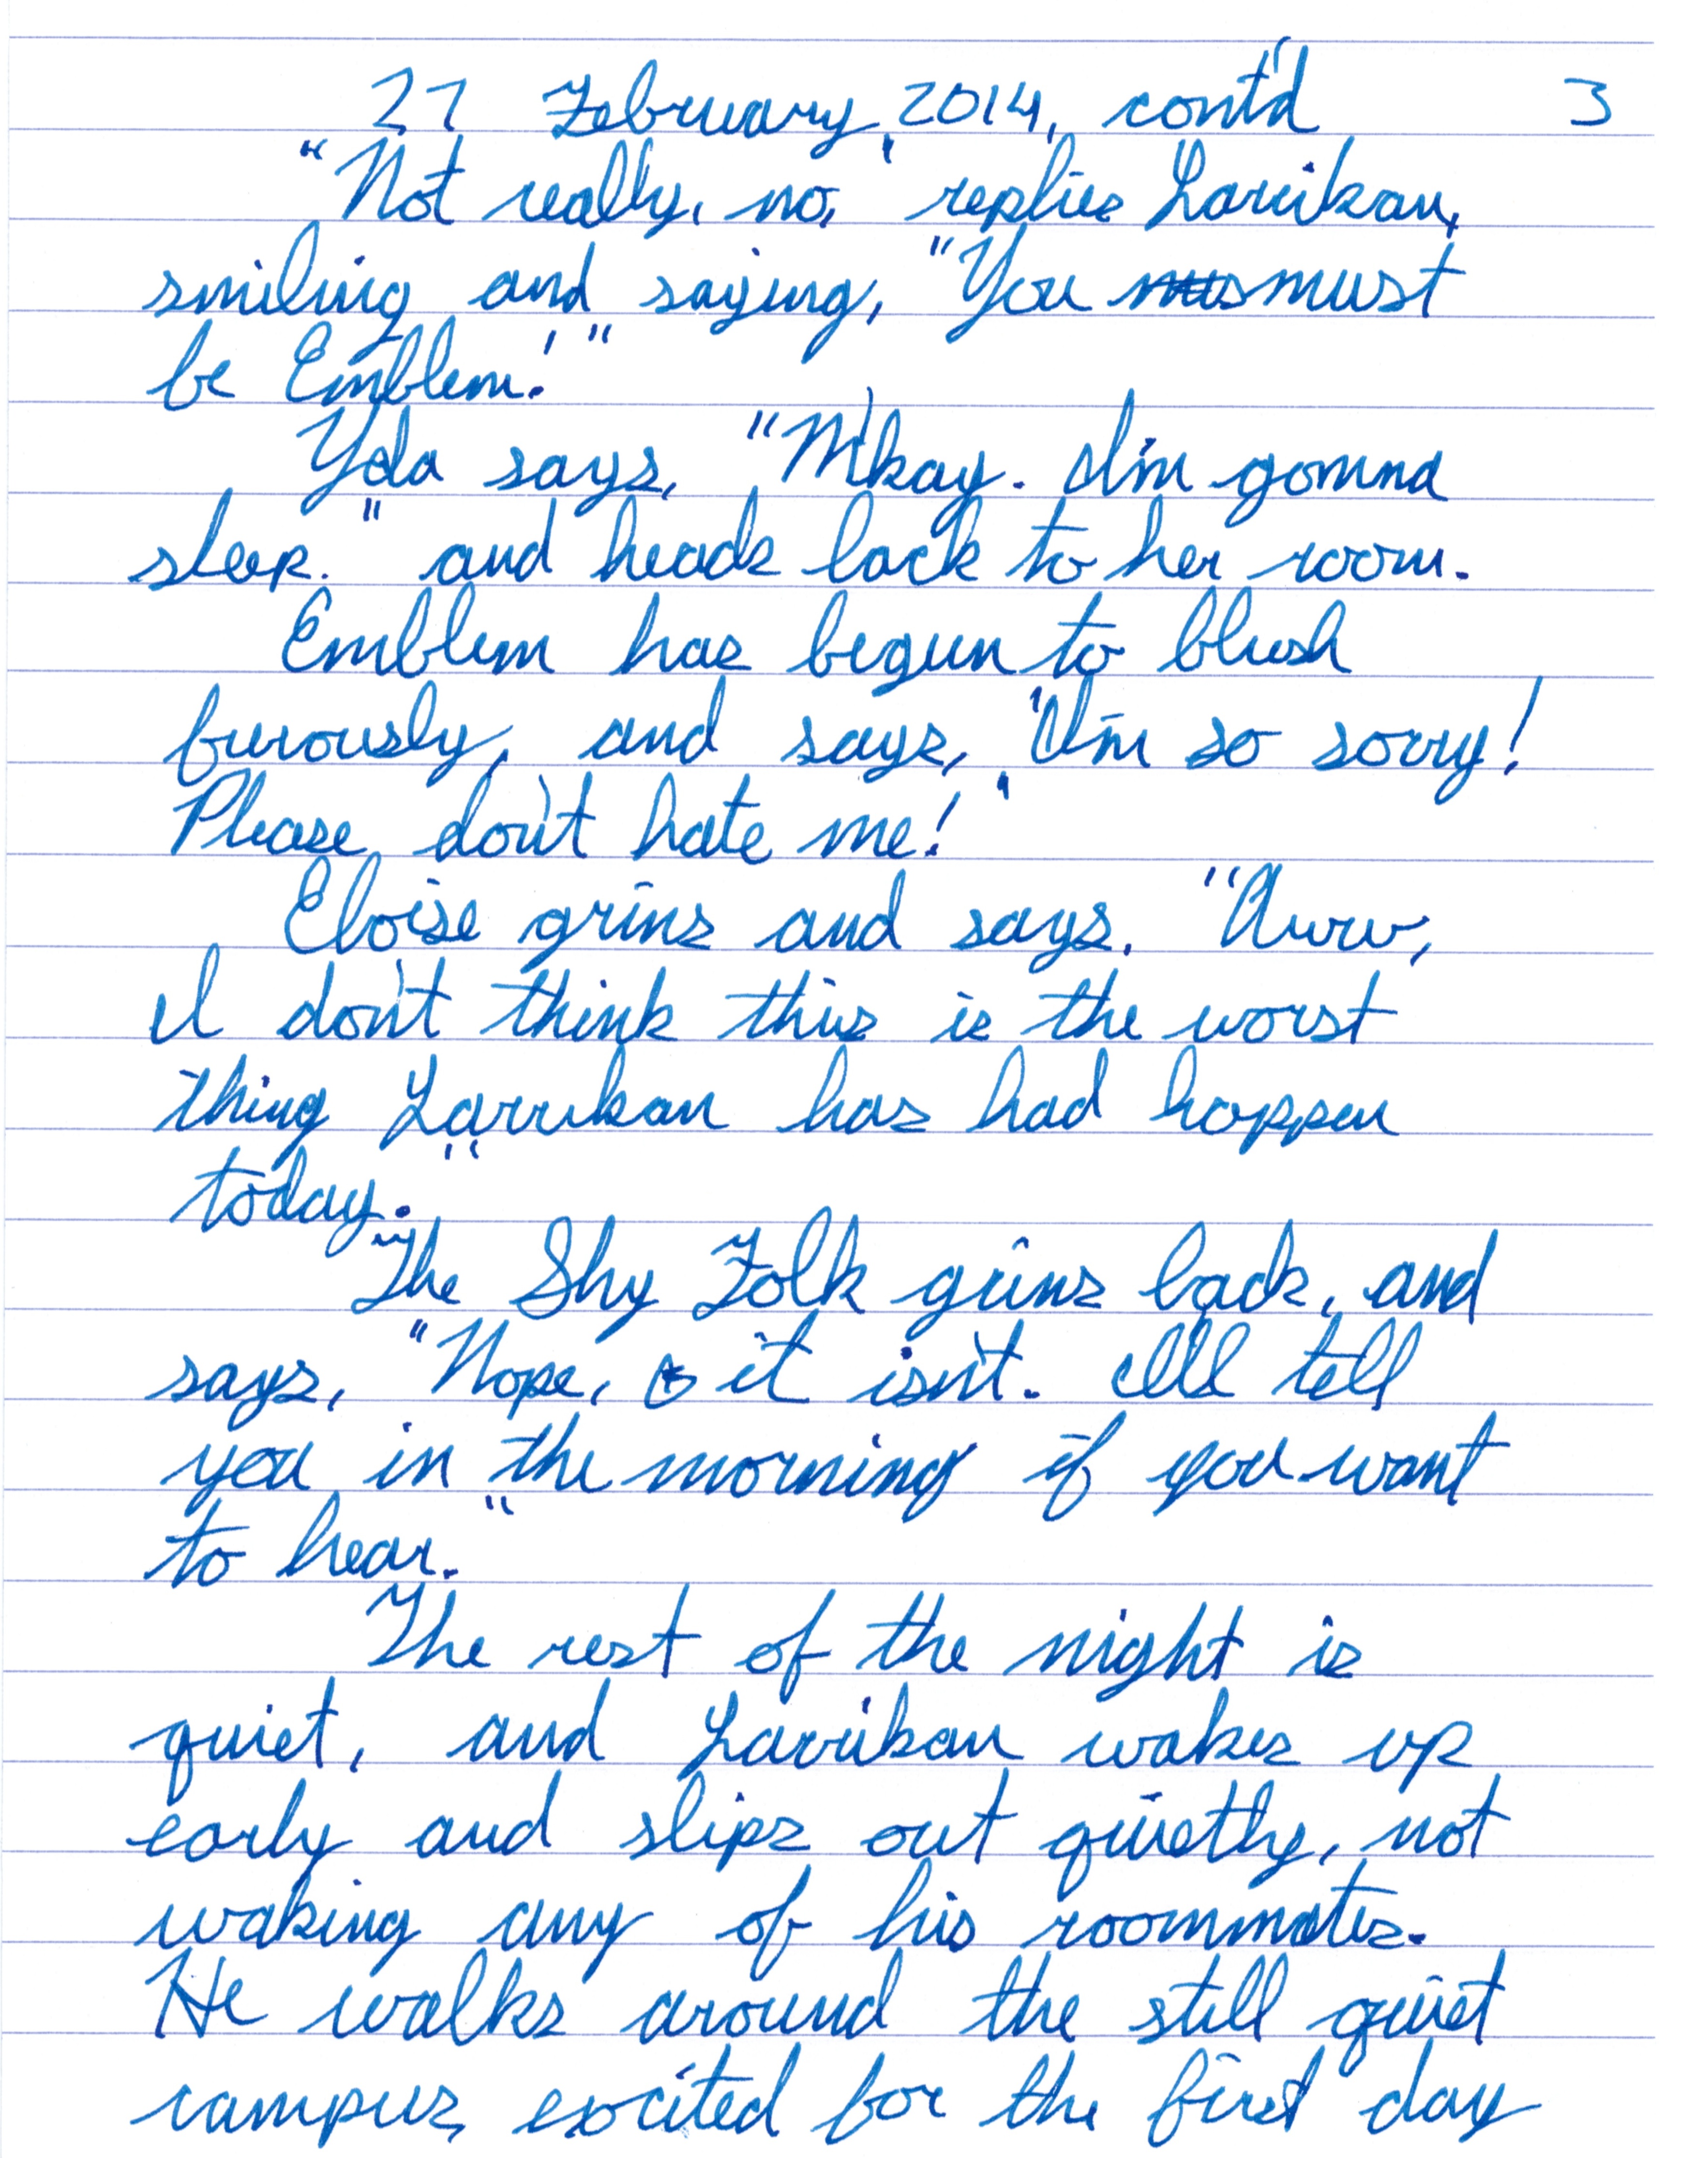 27 February 2014, cont'd 3
"Not really, no," replies Larrikan,
smiling and saying, "You mus must
be Emblem!"
Yda says, "M'kay. I'm gonna
sleep." and heads back to her room.
Emblem has begun to blush
furously, and says, "I'm so sorry!
Please don't hate me!"
Eloise grins and says, "Aww,
I don't think this is the worst
thing Larrikan has had happen
today."
The Shy Folk grins back, and
says, "Nope, it isn't. I'll tell
you in the morning if you want
to hear."
The rest of the night is
quiet, and Larrikan wakes up
early and slips out quietly, not
waking any of his roommates.
He walks around the still quiet
campus, excited for the first day